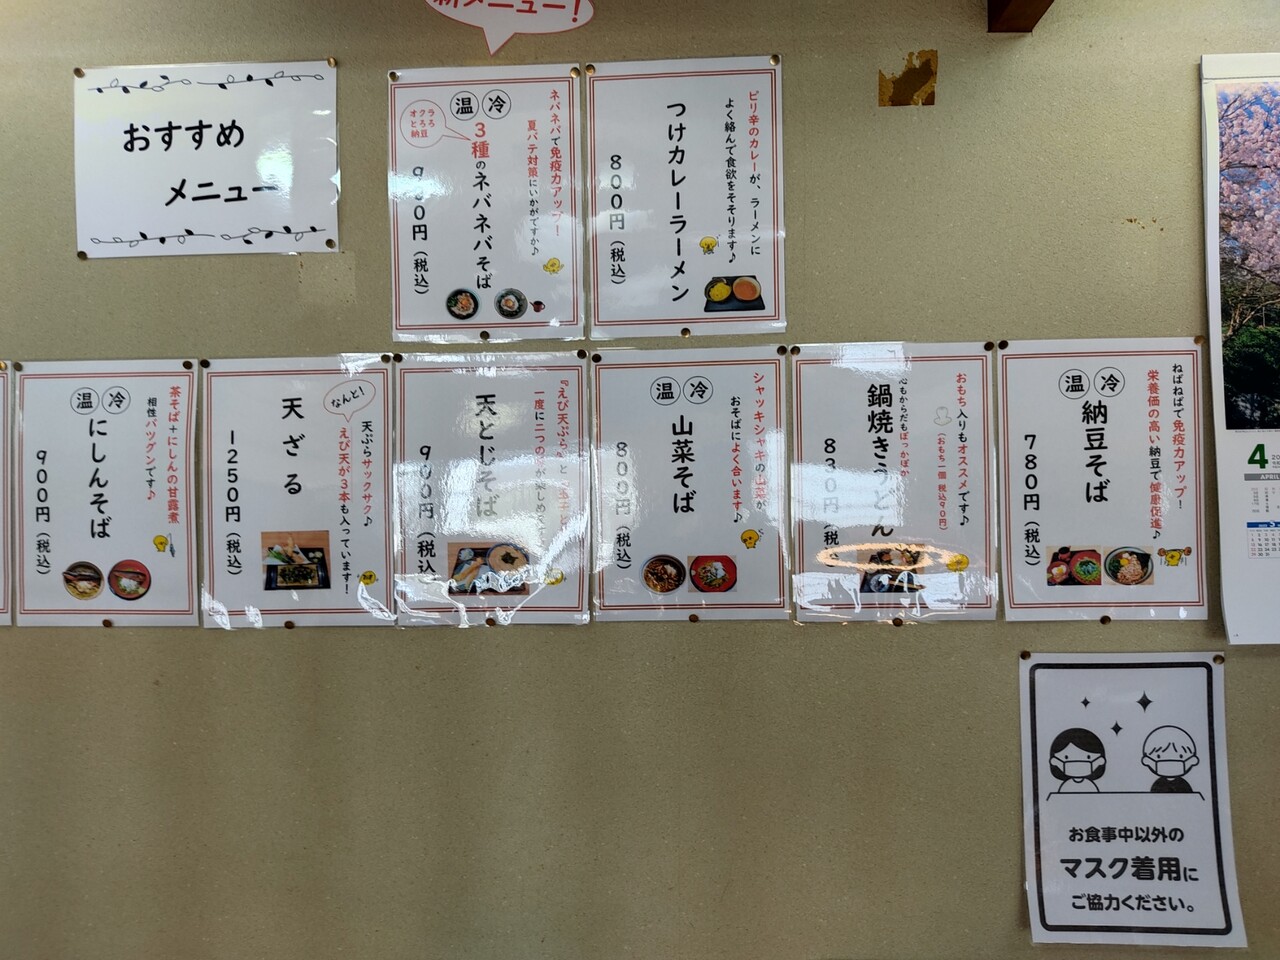 新メニュー!
おすすめ
メニュー
ネバネバで免疫力アップ!
夏バテ対策にいかがですか♪
温 冷
3種のネバネバそば
オクラ
とろろ
納豆
円(税込)
ピリ辛のカレーが、ラーメンに
よく絡んで食欲をそそります♪
つけカレーラーメン
800円(税込)
茶そば+にしんの甘露煮
相性バツグンです♪
温 冷
にしんそば
900円(税込)
なんと!
天ぷらサックサク♪
えび天が3本も入っています!
天ざる
1250円(税込)
『えび天ぷら』と
一度に二つの
天とじそば
900円(税込
シャッキシャキの山菜が
おそばによく合います♪
温 冷
山菜そば
800円(税込)
おもち入りもオススメです♪
(おもち一個 税込90円)
心もからだもぽっかぽか
鍋焼きうどん
830円(税込)
ねばねばで免疫力アップ!
栄養価の高い納豆で健康促進♪
温 冷
納豆そば
780円(税込)
4
APRIL
お食事中以外の
マスク着用に
ご協力ください。